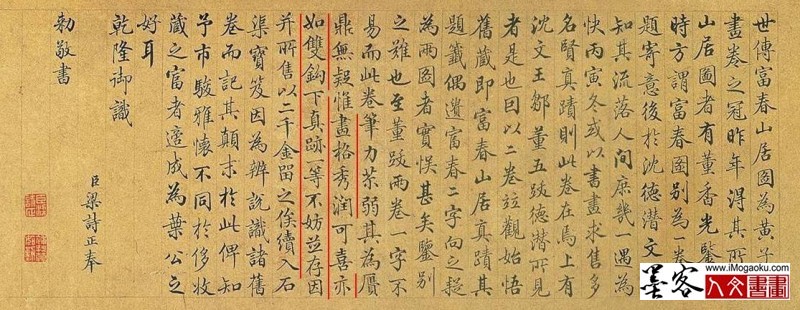 世傳富春山居圖為黃子
畫卷之冠昨年得其所
山居圖者有董香光鑒
時方謂富春圖別為一卷
題寄意後於沈德潛文
知其流落人間庶幾一遇為
快丙寅冬或以書畫求售多
名賢真蹟則此卷在焉上有
沈文王鄒董五跋德潛所見
者是也因以二卷並觀始悟
舊藏即富春山居真蹟其
題籤偶遺富春二字向之疑
為兩圖者實悮甚矣鑒別
之難也至董跋兩卷一字不
易而此卷筆力苶弱其為贗
鼎無疑惟畫格秀潤可喜亦
如雙鈎下真跡一等不妨並存因
并所售以二千金留之俟續入石
渠寶笈因為辨說識諸舊
卷而記其顛末於此俾知
予市駿雅懷不同於侈收
藏之富者適成為葉公之
好耳
乾隆御識
臣梁詩正奉
勅敬書
墨客
www.iMogaoku.com
人文書畫